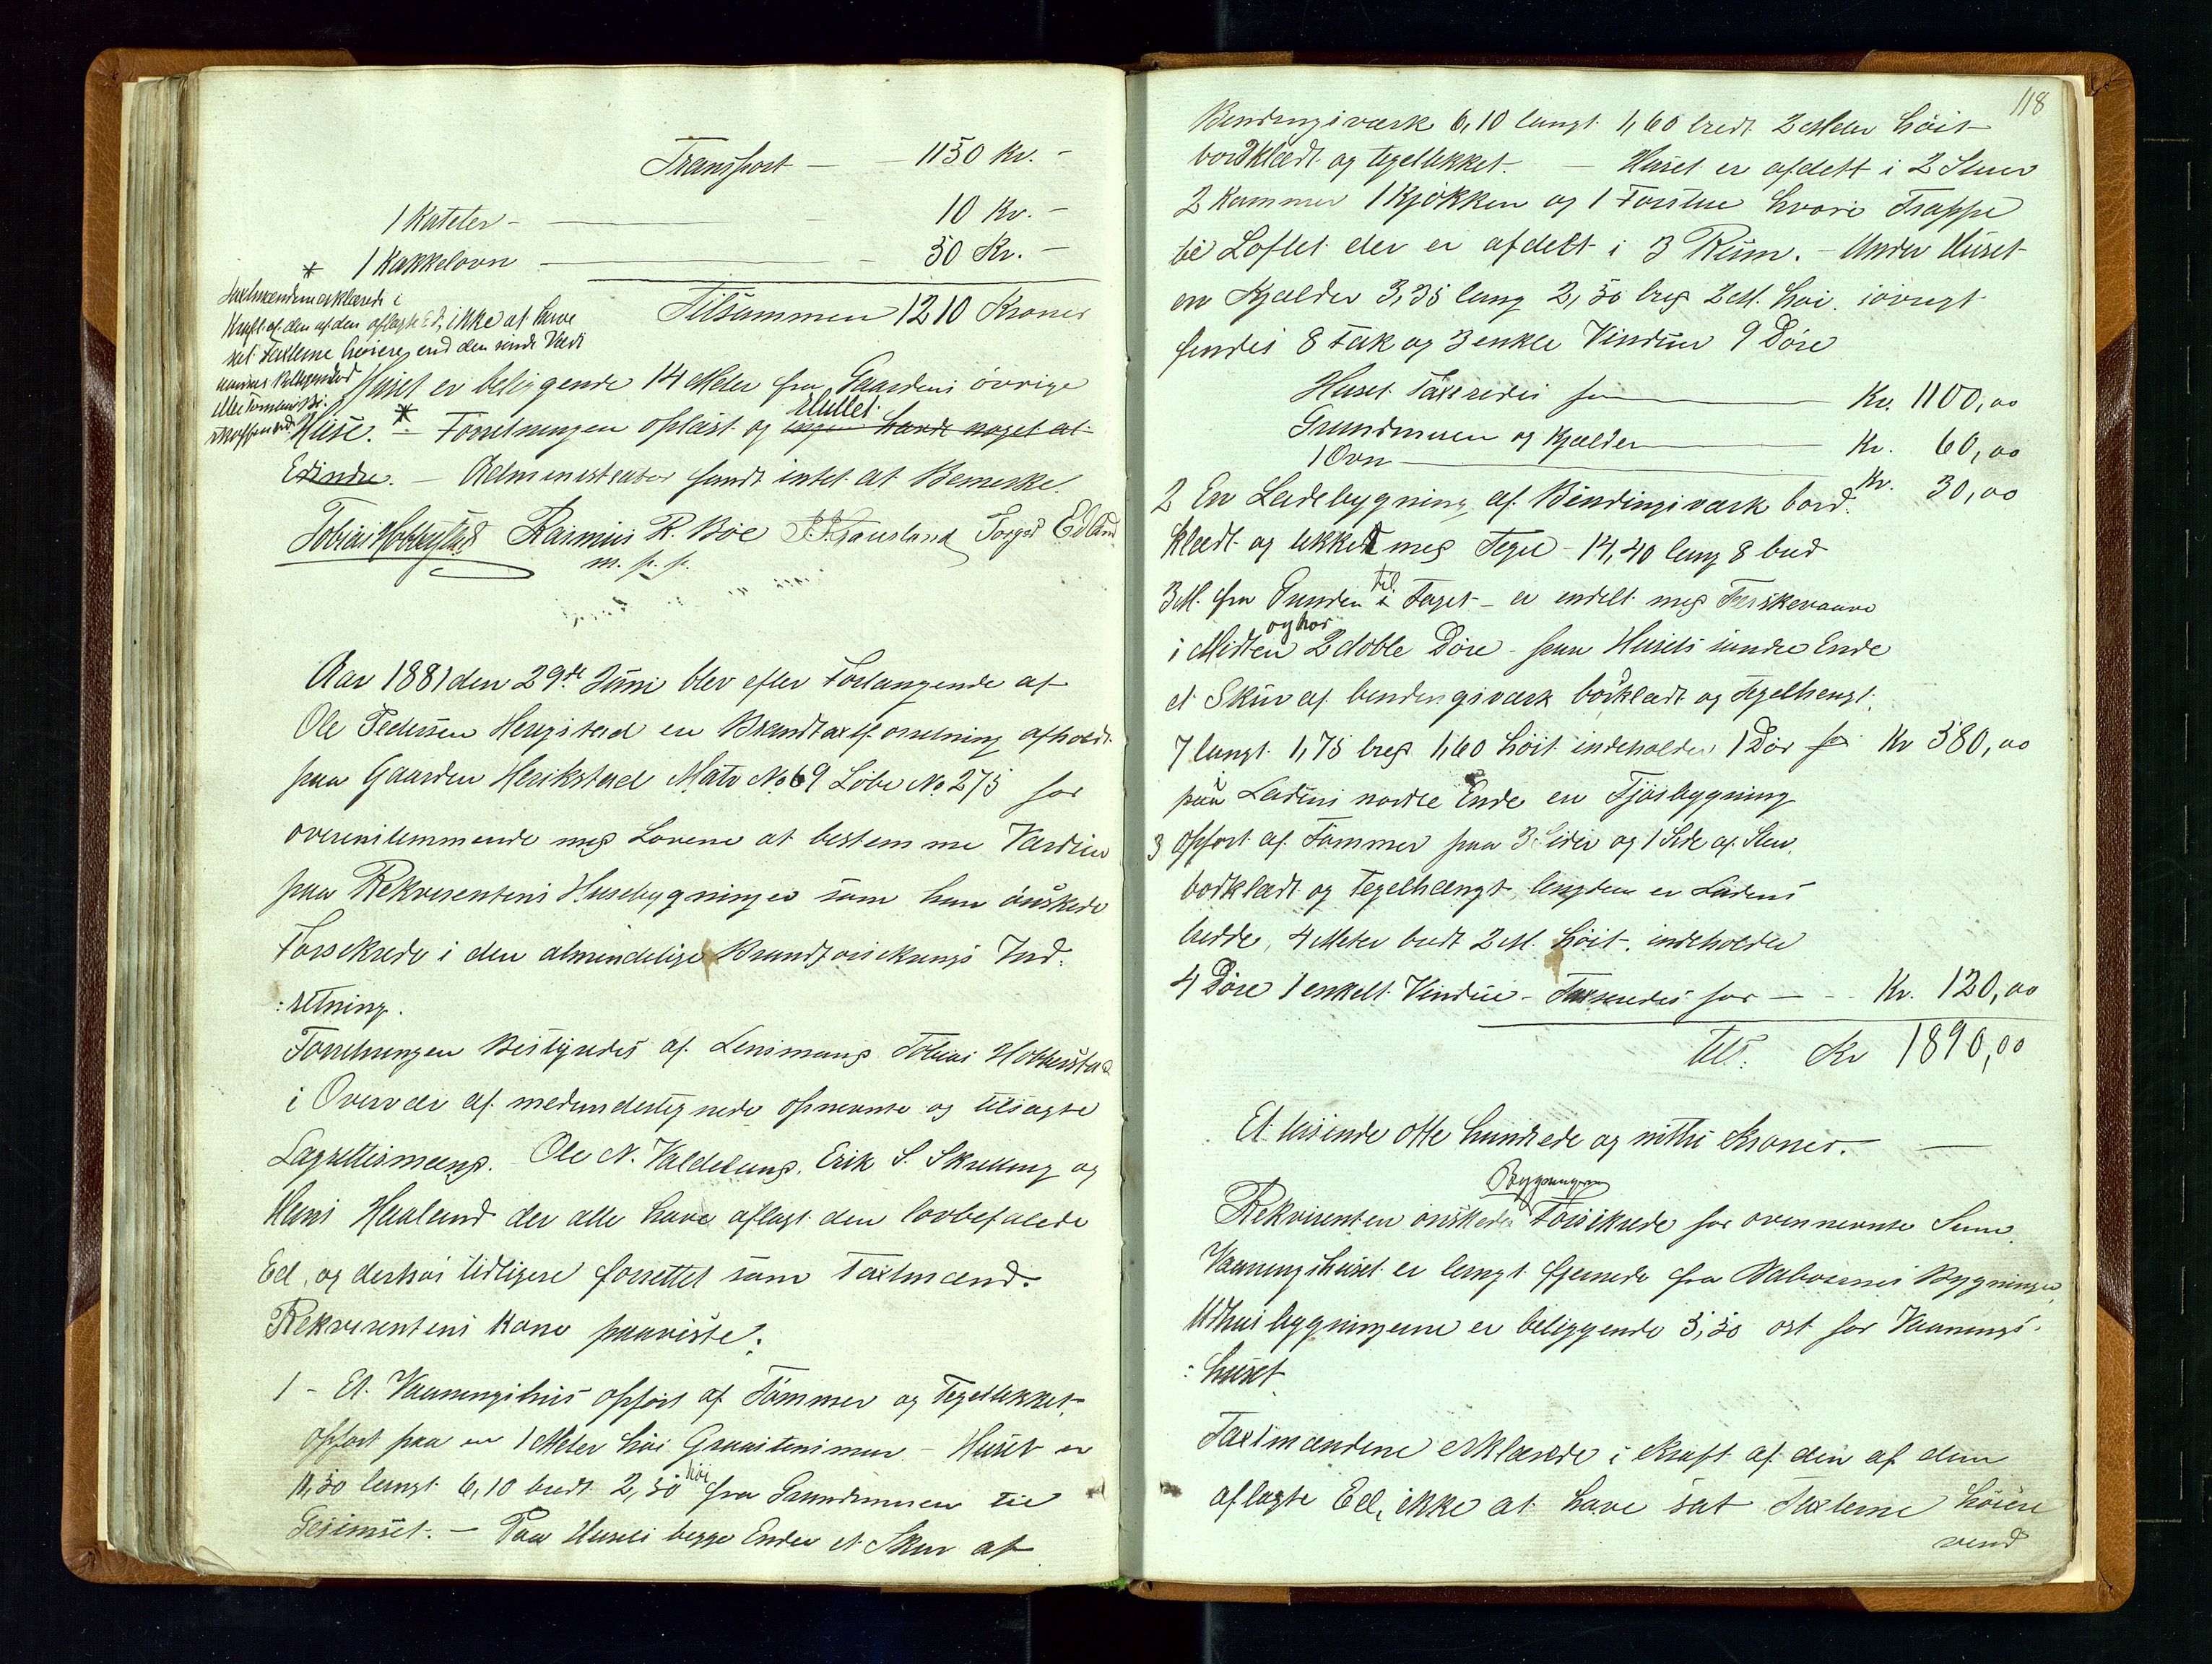 Transport — 1150 Kr. -
1 Kateter - 10 Kr. -
1 Kakkelovn - 50 Kr. -
Tilsammen 1210 Kroner
* Taxtmændene erklærede i
Kraft af den af dem aflagte Ed, ikke at have
sat Taxterne høiere end den sande Værdi
Huset er beliggende 14 Meter fra Gaardens øvrige
Huse. * - Forretningen oplæst og sluttet. ingen havde noget at
Erindre. - Administrator fandt intet at Bemerke.
Tobias Hobberstad Rasmus R. Bøe Torger Edland
m. p. p.
Aar 1881 den 29de Juni blev efter Forlangende af
Ole Pedersen Herigstad en Brandtaxtforretning afholdt
paa Gaarden Herikstad Matr No 69 Løbe No. 275 for
overensstemmende med Lovene at bestemme Værdien
paa Rekvirentens Husebygninger som han ønskede
Forsikrede i den almindelige Brandforsikrings Ind:
:retning.
Forretningen Bestyredes af Lensmand Tobias Hobberstad
i Overvær af medundertegnede opnevnte og tilsagte
Lagrettesmænd. Ole N. Valdeland, Erik S. Skretting og
Hans Haaland der alle have aflagt den lovbefalede
Ed, og derhos tidligere forrettet som Taxtmænd.
Rekvirentens Kone paaviste:
1 - Et Vaaningshus opført af Tømmer og Tegeltekket
opført paa en 1 Meter høi Graastensmur - Huset er
11,50 langt 6,10 bredt 2,50 høi fra Grundmuren til
Gesimset. - Paa Husets begge Ender et Skur af
118
Bindingsværk 6,10 langt 1,60 bredt 2 Meter høit
bordklædt og tegeltekket. - Huset er afdelt i 2 Stuer
2 Kammer 1 Kjøkken og 1 Forstue hvori Trappe
til Loftet der er afdelt i 3 Rum. - Under Huset
en Kjælder 3,35 lang 2,50 bred 2 M. høi. iøvrigt
findes 8 Fak og 3 enkle Vinduer 9 Døre
Huset Taxeredes for Kr. 1100,00
Grundmuren og Kjælder Kr. 60,00
1 Ovn Kr. 30,00
2 En Ladebygning af Bindingsværk bord:
klædt og tekket med Tegel 14,40 lang 8 bred
3 M. fra Grunden til Taget - er indelt med Tærskevaane
i Midten og har 2 doble Døre - paa Husets søndre Ende
et Skur af bindingsværk bordklædt og Tegelhengt.
7 langt 1,75 bred 1,60 høit indeholder 1 Dør for Kr 580,00
paa Ladens nordre Ende en Fjøsbygning
3 opført af Tømmer paa 3 Sider og 1 Side af Sten.
bordklædt og Tegelhængt, lengden er Ladens
bredde, 4 Meter bredt 2 M. høit, indeholder
4 Døre 1 enkelt Vindue - Taxeredes for — Kr. 120,00
Tils. Kr 1890,00
Et tusinde otte hundrede og nitti Kroner. —
Rekvirenten ønskede Bygningerne Forsikrede for ovennevnte Sum.
Vaaningshuset er langt fjernede fra Naboernes Bygninger
Udhusbygningerne er beliggende 5,50 øst for Vaanings:
:huset
Taxtmændene erklærede i Kraft af den af dem
aflagte Ed, ikke at have sat Taxterne høiere
vend